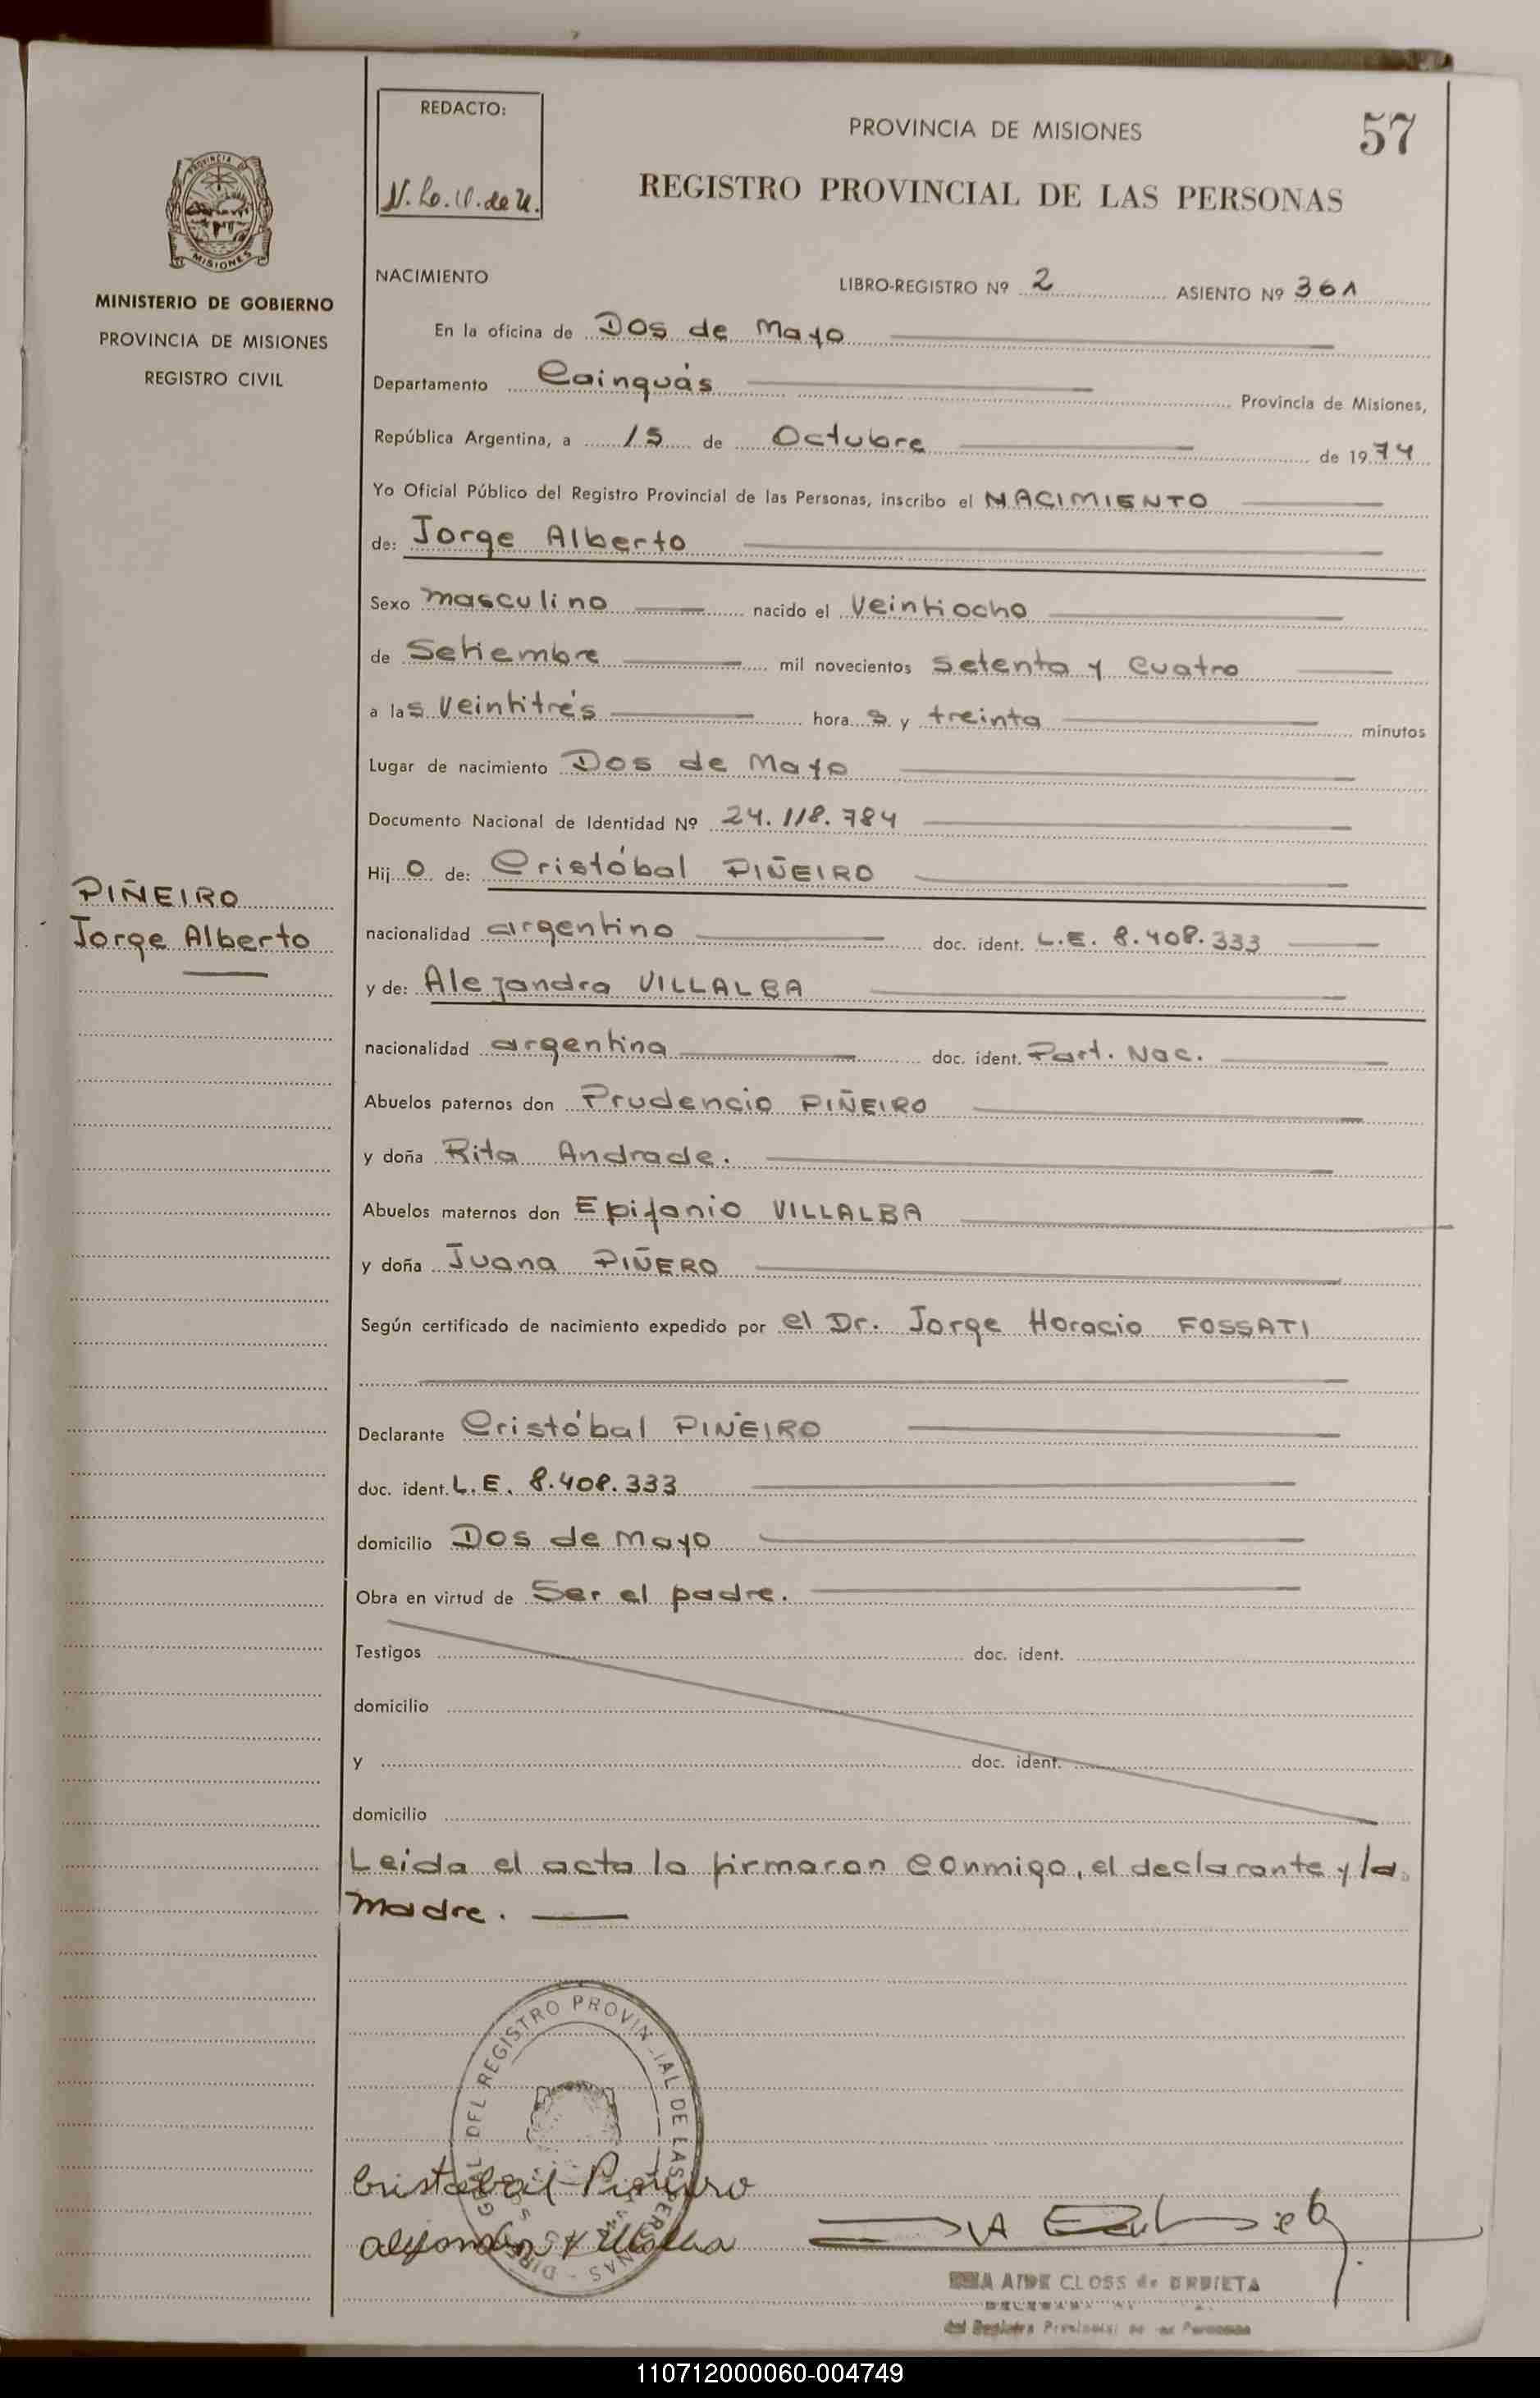 REDACTO:
PROVINCIA DE MISIONES
57
REGISTRO PROVINCIAL DE LAS PERSONAS
PROVINCIA DE
MISIONES
MINISTERIO DE GOBIERNO
PROVINCIA DE MISIONES
REGISTRO CIVIL
NACIMIENTO LIBRO-REGISTRO Nº 2 ASIENTO Nº 361
En la oficina de Dos de Mayo
Departamento Cainguás Provincia de Misiones,
República Argentina, a 15 de Octubre de 1974
Yo Oficial Público del Registro Provincial de las Personas, inscribo el NACIMIENTO
de: Jorge Alberto
Sexo masculino nacido el veintiocho
de Setiembre mil novecientos setenta y cuatro
a las veintitrés horas y treinta minutos
Lugar de nacimiento Dos de Mayo
Documento Nacional de Identidad Nº 24.118.784
Hijo de: Cristóbal PIÑEIRO
PIÑEIRO
Jorge Alberto
nacionalidad argentino doc. ident. L.E. 8.408.333
y de: Alejandra VILLALBA
nacionalidad argentina doc. ident. Part. Nac.
Abuelos paternos don Prudencio PIÑEIRO
y doña Rita Andrade.
Abuelos maternos don Epifanio VILLALBA
y doña Juana PIÑERO
Según certificado de nacimiento expedido por el Dr. Jorge Horacio FOSSATI
Declarante Cristóbal PIÑEIRO
doc. ident. L.E. 8.408.333
domicilio Dos de Mayo
Obra en virtud de Ser el padre.
Testigos doc. ident.
domicilio
y doc. ident.
domicilio
Leida el acta la firmaron conmigo, el declarante y la
madre.
DEL REGISTRO PROVINCIAL DE LAS PERSONAS
Cristobal Piñeiro
alejandra Villalba
AIDE CLOSS de URDIETA
del Registro Provincial de las Personas
110712000060-004749